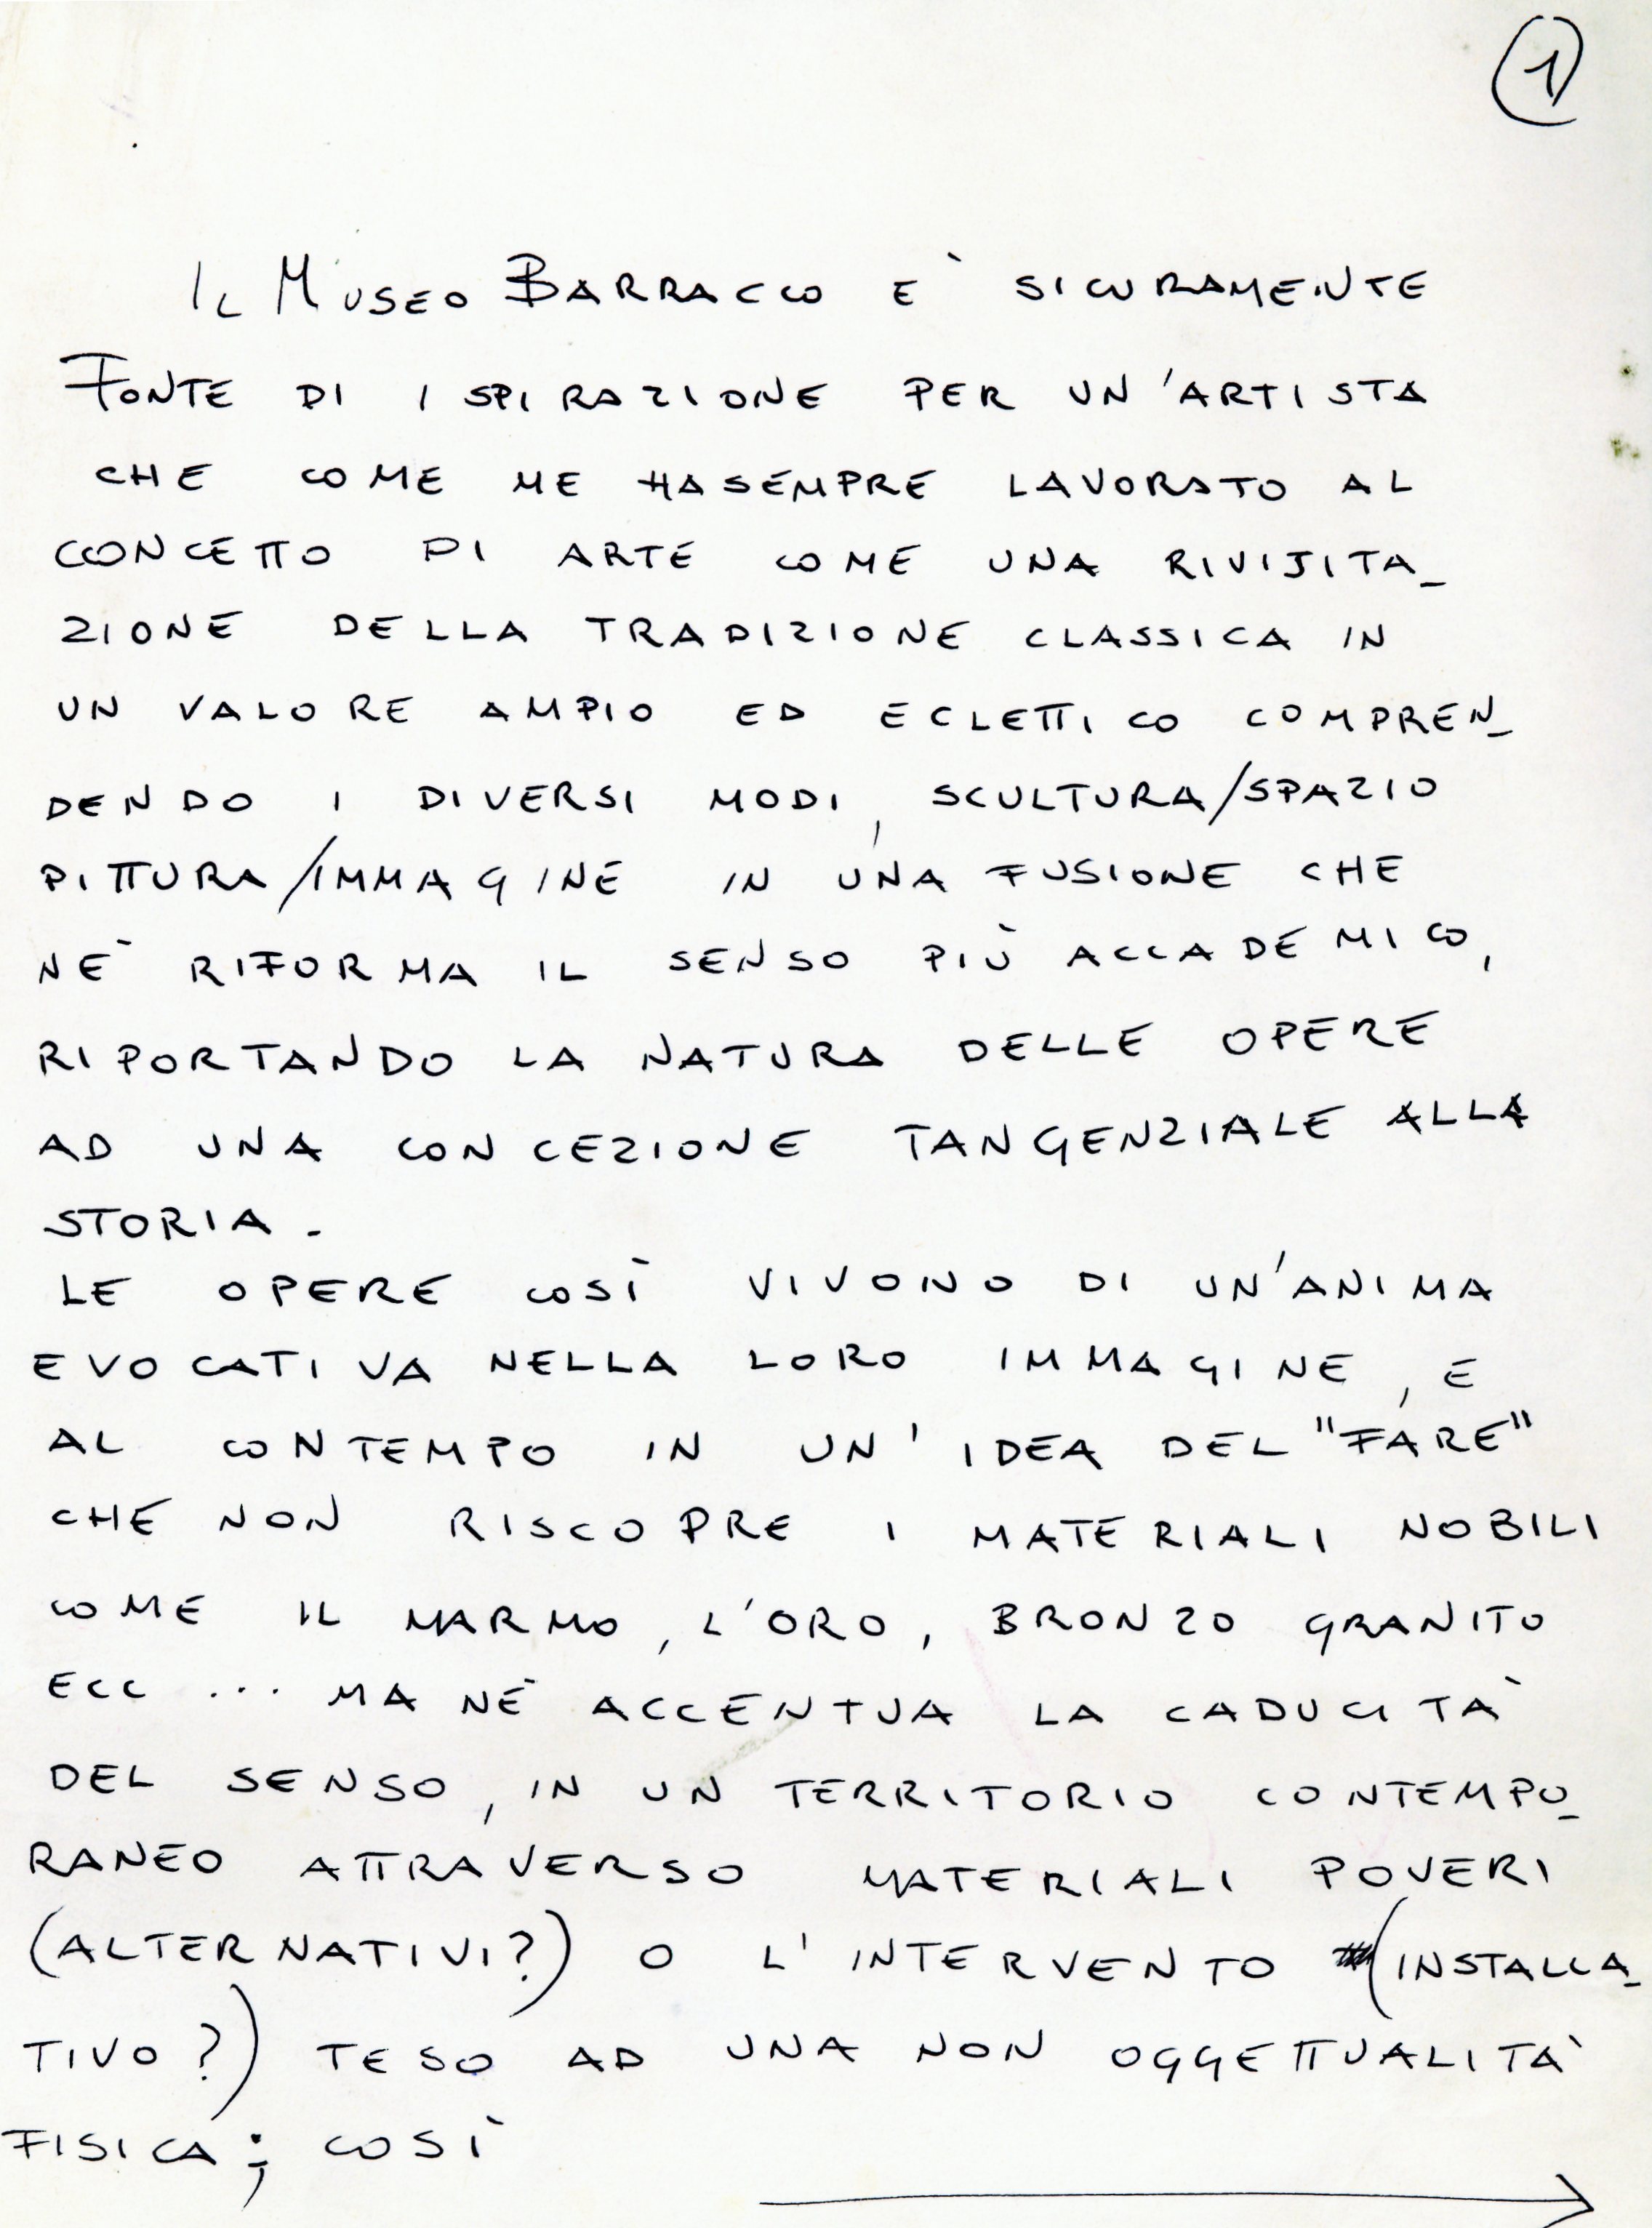 1
Il Museo Barracco è sicuramente
Fonte di ispirazione per un'artista
che come me ha sempre lavorato al
concetto di arte come una rivisita_
zione della tradizione classica in
un valore ampio ed eclettico compren_
dendo i diversi modi, scultura/spazio
pittura/immagine in una fusione che
nè riforma il senso più accademico,
riportando la natura delle opere
ad una concezione tangenziale alla
storia.
Le opere così vivono di un'anima
evocativa nella loro immagine, e
al contempo in un'idea del "fare"
che non riscopre i materiali nobili
come il marmo, l'oro, bronzo granito
ecc ... ma nè accentua la caducità
del senso, in un territorio contempo_
raneo attraverso materiali poveri
(alternativi?) o l'intervento (installa_
tivo?) teso ad una non oggettualità
fisica; così